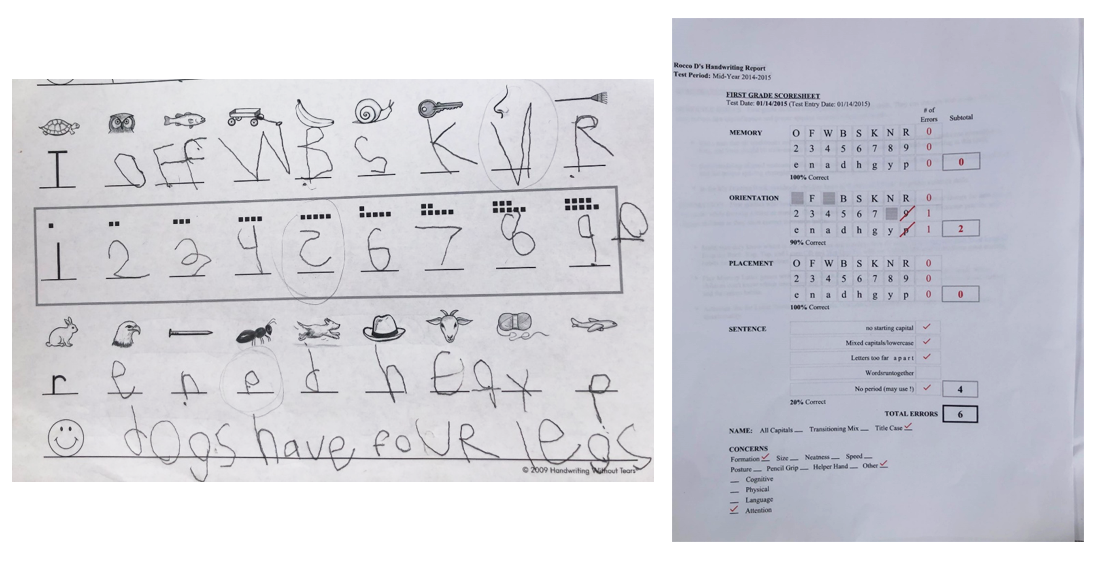 I O FF W B S K V R
1 2 3 4 5 6 7 8 9 10
r e n e d h g y p
dogs have foUR legs
© 2009 Handwriting Without Tears
Rocco D's Handwriting Report
Test Period: Mid-Year 2014-2015
FIRST GRADE SCORESHEET
Test Date: 01/14/2015 (Test Entry Date: 01/14/2015)
# of
Errors Subtotal
MEMORY O F W B S K N R 0
2 3 4 5 6 7 8 9 0
e n a d h g y p 0 0
100% Correct
ORIENTATION F B S K N R 0
2 3 4 5 6 7 9 1
e n a d h g y p 1 2
90% Correct
PLACEMENT O F W B S K N R 0
2 3 4 5 6 7 8 9 0
e n a d h g y p 0 0
100% Correct
SENTENCE no starting capital ✓
Mixed capitals/lowercase ✓
Letters too far a p a r t ✓
Wordsruntogether
No period (may use !) ✓ 4
20% Correct
TOTAL ERRORS 6
NAME: All Capitals __ Transitioning Mix __ Title Case ✓
CONCERNS
Formation ✓ Size __ Neatness __ Speed __
Posture __ Pencil Grip __ Helper Hand __ Other ✓
__ Cognitive
__ Physical
__ Language
✓ Attention